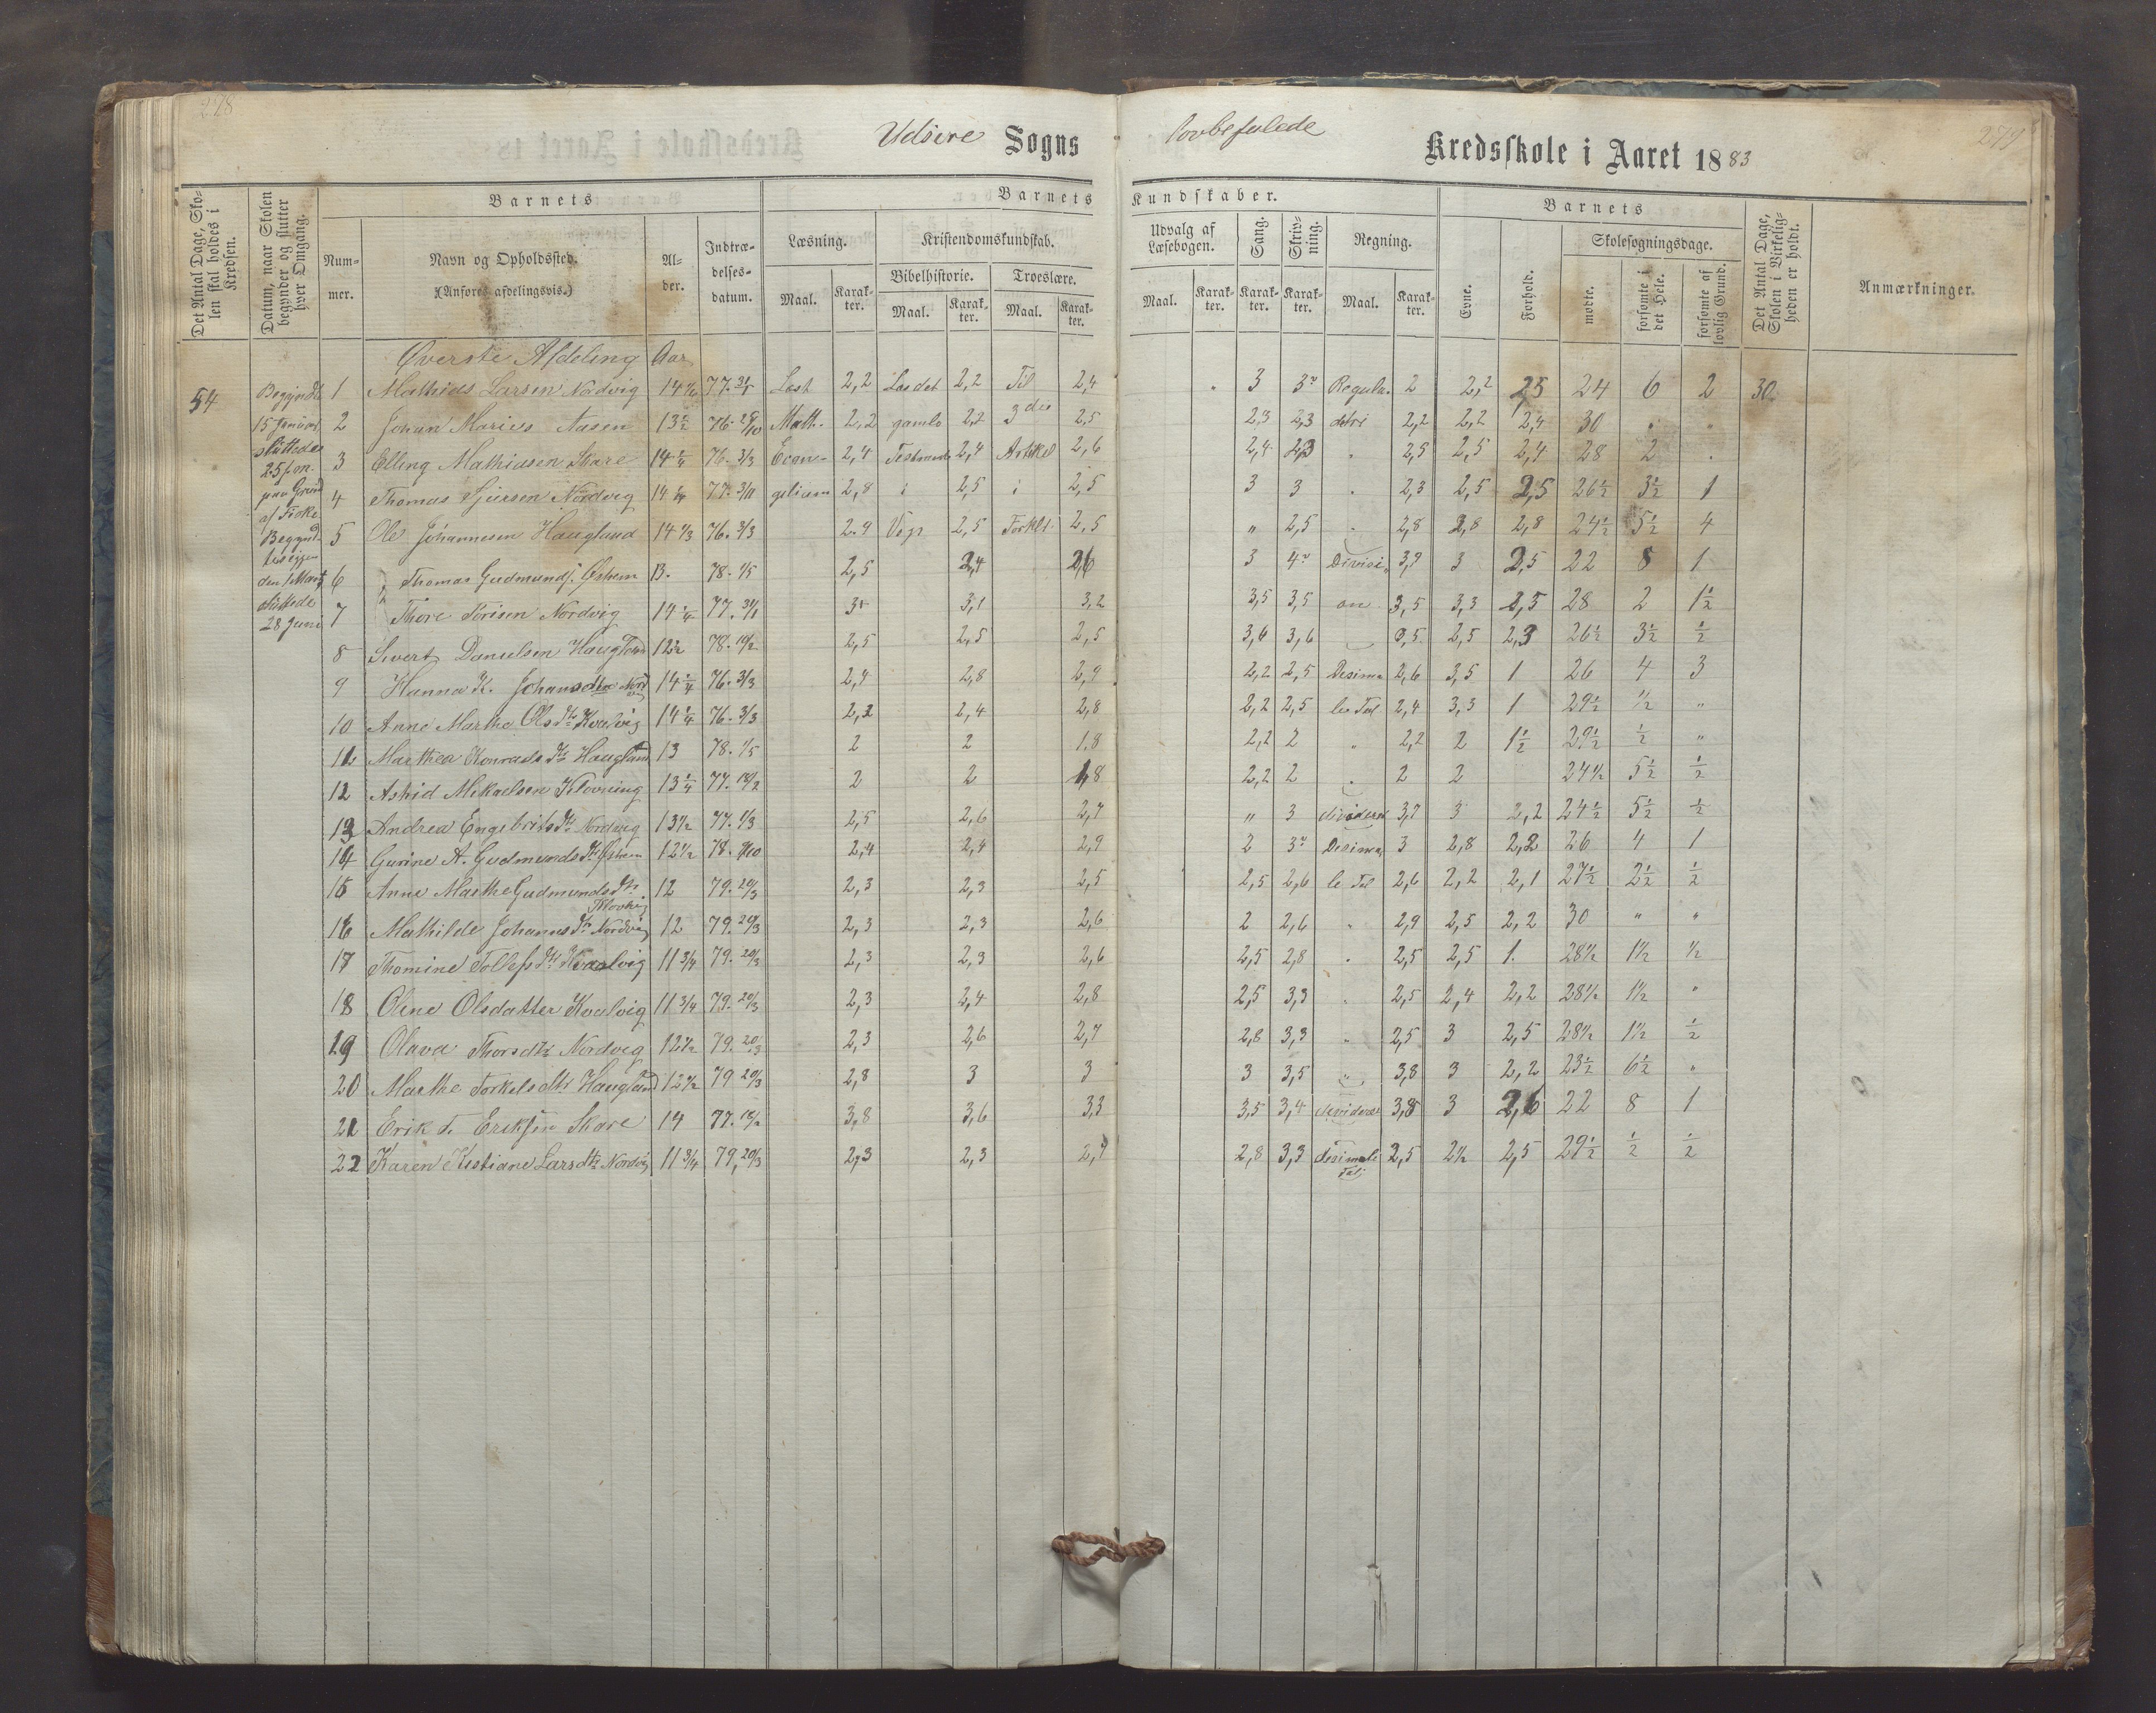 278
279
Udsire Sogns lovbefalede Kredsskole i Aaret 1883
Det Antal Dage, Skolen skal holdes i Kredsen.
Datum, naar Skolen begynder og slutter hver Omgang.
Barnets
Nummer.
Navn og Opholdssted.
(Anføres afdelingsvis.)
Alder.
Indtrædelsesdatum.
Barnets Kundskaber.
Læsning.
Maal.
Karakter.
Kristendomskundskab.
Bibelhistorie.
Maal.
Karakter.
Troeslære.
Maal.
Karakter.
Udvalg af Læsebogen.
Maal.
Karakter.
Sang.
Karakter.
Skrivning.
Karakter.
Regning.
Maal.
Karakter.
Barnets
Evne.
Forhold.
Skolesøgningsdage.
mødte.
forsømte i det Hele.
forsømte af lovlig Grund.
Det Antal Dage, Skolen i Virkeligheden er holdt.
Anmærkninger.
Øverste Afdeling Aar
54
Begyndte
15 Januar
sluttedes
25 Jan.
paa Grund
af Fiske
Begyndtes igjen
den 1 Marts
sluttede
28 Juni
1 Mathias Larsen Nordvig 2,2 Læs det 2,2 Til 2,4 3 3 Regula 2 2,2 2,5 24 6 2 30
2 Johan Marius Aasen 13½ Matth. 2,2 gamle 2,2 3die 2,5 2,3 2,3 detri 2,2 2,2 2,4 30
3 Elling Mathiasen Skare 14¼ 76. 3/3 Evan- 2,4 Testmente 2,4 Artikel 2,6 2,4 2,3 2,5 2,5 2,4 28 2
4 Thomas Sjursen Nordvig 14¼ 77. 3/11 gelium 2,8 i 2,5 i 2,5 3 3 2,3 2,5 2,5 26½ 3½ 1
5 Ole Johannesen Haugland 14 1/3 76. 3/3 2.9 Vogt 2,5 Forkl. 2,5 " 2,5 2,8 2,8 2,8 24½ 5½ 4
6 Thomas Gudmunds. Østrem 13. 78. 1/5 2,5 2,4 2,6 3 4 Divisi- 3,7 3 2,5 22 8 1
7 Thore Torisen Nordvig 14¼ 3 3,1 3,2 3,5 3,5 on 3,5 3,3 2,5 28 2 1½
8 Sivert Danielsen Haugland 12½ 2,5 2,5 2,5 3,6 3,6 2,5 2,3 26½ 3½ ½
9 Hanna K. Johansdtr Nordvig 14¼ 76. 3/3 2,4 2,8 2,9 2,2 2,5 Desima 2,6 3,5 1 26 4 3
10 Anne Marthe Olsdtr Kvalvig 14¼ 76. 3/3 2,2 2,4 2,8 2,2 2,5 le Tal 2,4 3,3 1 29½ ½ "
11 Marthea Konradsdtr Haugland 13 78. 1/5 2 2 1.8 2,2 2 " 2,2 2 1½ 29½ ½ "
12 Astrid Mikaelsen Klovning 13¼ 77. 18/2 2 2 1,8 2,2 2 2 2 24½ 5½ ½
13 Andrea Engebritsdtr Nordvig 13½ 77. 1/3 2,5 2,6 2,7 " 3 dividere 3,7 3 2,2 24½ 5½ ½
14 Gurine A. Gudmundsdtr Østrem 12½ 2,4 2,4 2,9 2 3 Desima 3 2,8 2,2 26 4 1
15 Anne Marthe Gudmundsdtr Klovnig 12 79. 20/3 2,3 2,3 2,5 2,5 2,6 le Tal 2,6 2,2 2,1 27½ 2½ ½
16 Mathilde Johannsdtr Nordvig 12 79. 20/3 2,3 2,3 2,6 2 2,6 " 2,9 2,5 2,2 30 " "
17 Thomine Tollefsdtr Kvalvig 11¾ 79. 20/3 2,3 2,3 2,6 2,5 2,8 2,5 2,5 1. 28½ 1½ ½
18 Oline Olsdatter Kvalvig 11¾ 79. 20/3 2,3 2,4 2,8 2,5 3,3 2,5 2,4 2,2 28½ 1½ "
19 Olava Thorsdtr Nordvig 12½ 79. 20/3 2,3 2,6 2,7 2,8 3,3 2,5 3 2,5 28½ 1½ ½
20 Marthe Torkelsdtr Haugland 12½ 79 20/3 2,8 3 3 3 3,5 " 3,8 3 2,2 23½ 6½ "
21 Erik T. Eriksen Skare 14 77. 18/2 3,8 3,6 3,3 3,5 3,4 dividere 3,8 3 2,6 22 8 1
22 Karen Kistiane Larsdtr Nordvig 11¾ 79, 20/3 2,3 2,3 2,7 2,8 3,3 desimale Tal 2,5 2½ 2,5 29½ ½ ½